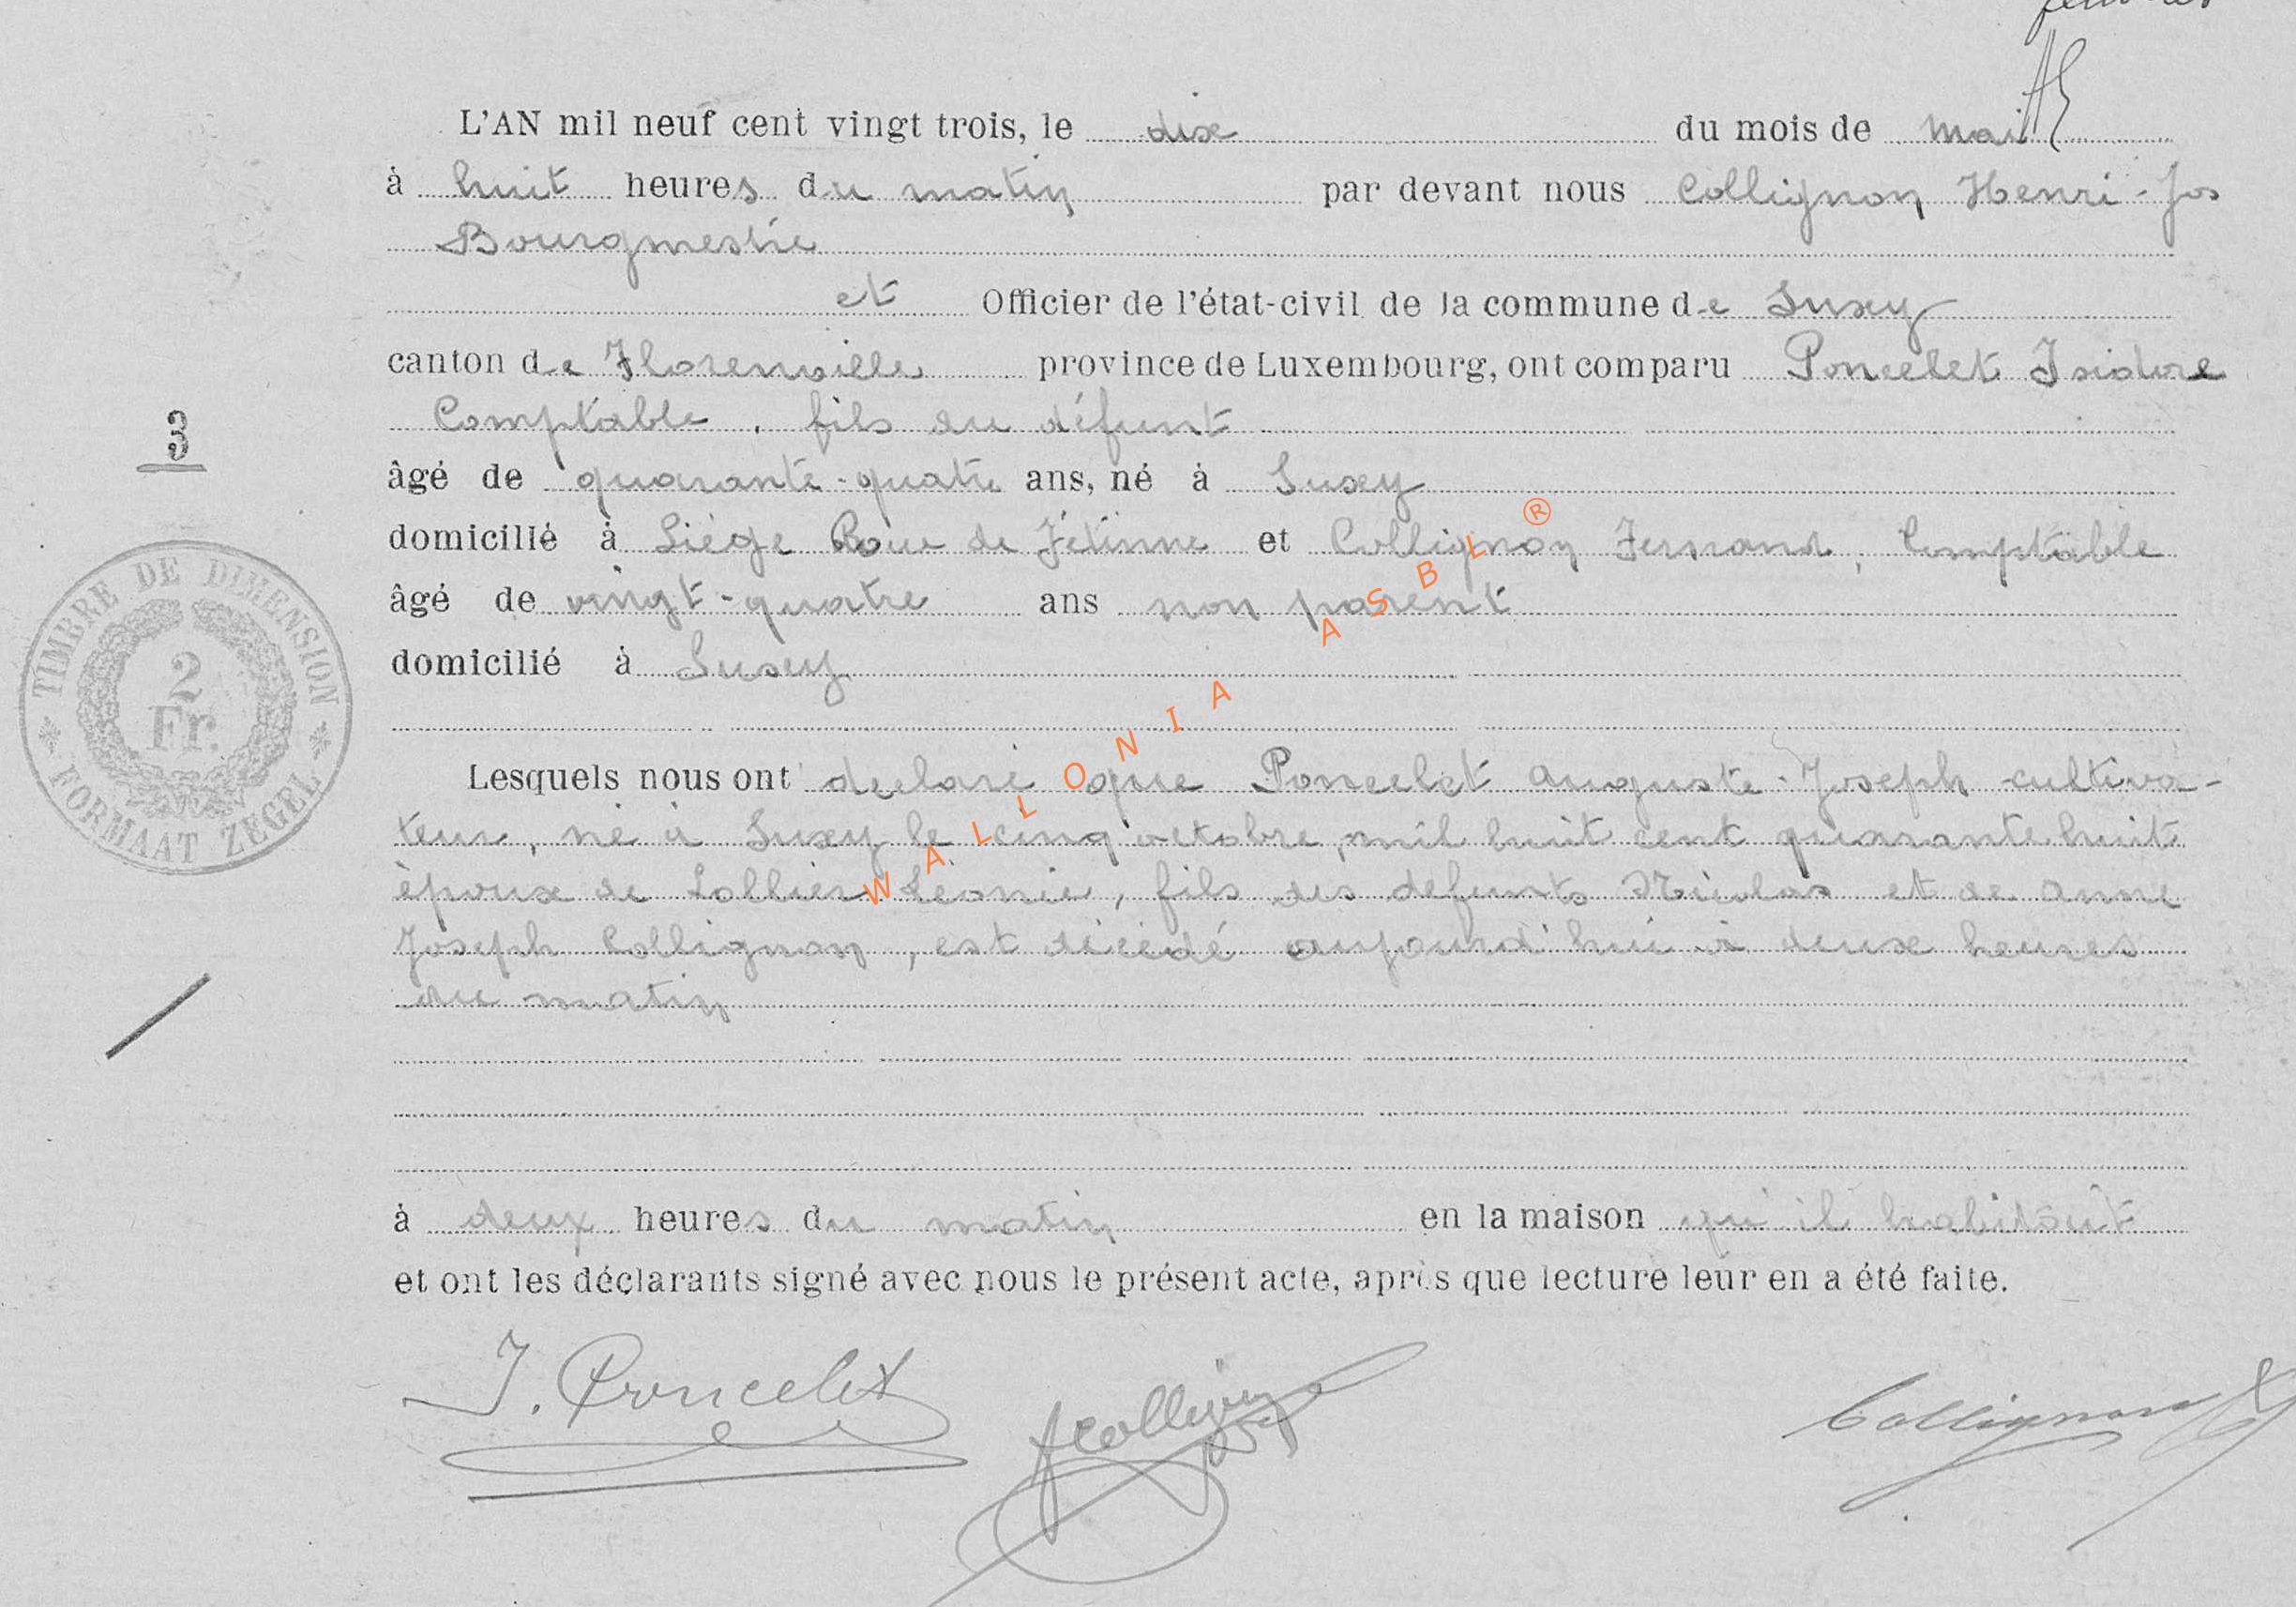 L'AN mil neuf cent vingt trois, le dix du mois de mai
à huit heures du matin par devant nous Collignon Henri-Jos
Bourgmestre
et Officier de l'état-civil de la commune de Suxy
canton de Florenville province de Luxembourg, ont comparu Poncelet Isidore
Comptable, fils du défunt
3
âgé de quarante-quatre ans, né à Suxy
domicilié à Liège Roue de Fétinne et Collignon Fernand, Comptable
âgé de vingt-quatre ans non parent
domicilié à Suxy
TIMBRE DE DIMENSION
2
Fr.
FORMAAT ZEGEL
Lesquels nous ont declaré que Poncelet Auguste-Joseph cultiva-
teur, né à Suxy le cinq octobre, mil huit cent quarante huit
époux de Lollier Léonie, fils des défunts Nicolas et de Anne
Joseph Collignon, est décédé aujourd'hui à deux heures
du matin
WALLONIA ASBL ®
à deux heures du matin en la maison qu'il habitait
et ont les déclarants signé avec nous le présent acte, après que lecture leur en a été faite.
I. Poncelet
FCollignon
Collignon